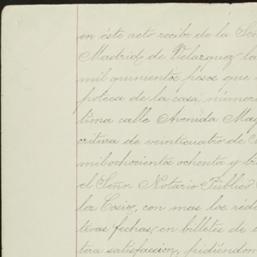 en éste acto recibe de la Se
Madrid de Velazquez la
mil quinientos pesos que
poteca de la casa, número
tima calle Avenida May
critura de veinticuatro de
mil ochocientos ochenta y tr
el Señor Notario Público
la Cosio, con mas los rédi
tivas fechas, en billetes de
tera satisfaccion, pidiéndom